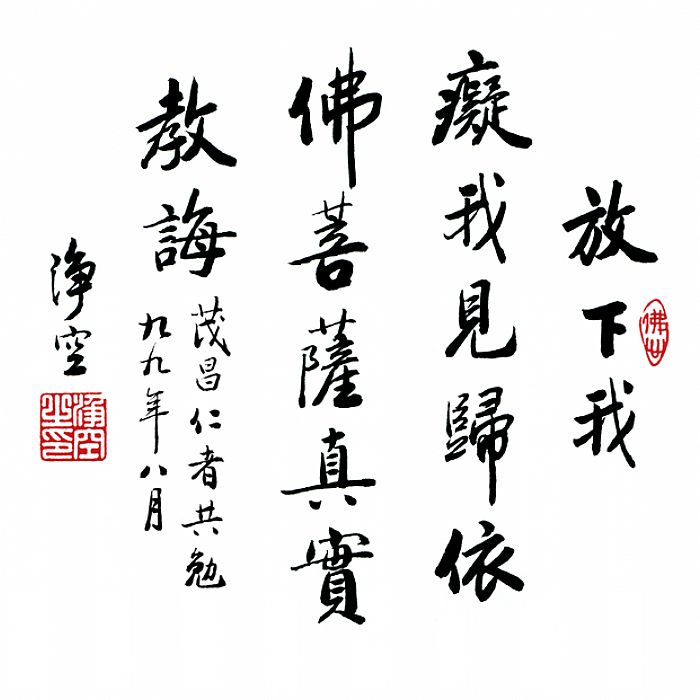 放下我
癡我見歸依
佛菩薩真實
教誨
茂昌仁者共勉
九九年八月
淨空
佛世
淨空之印